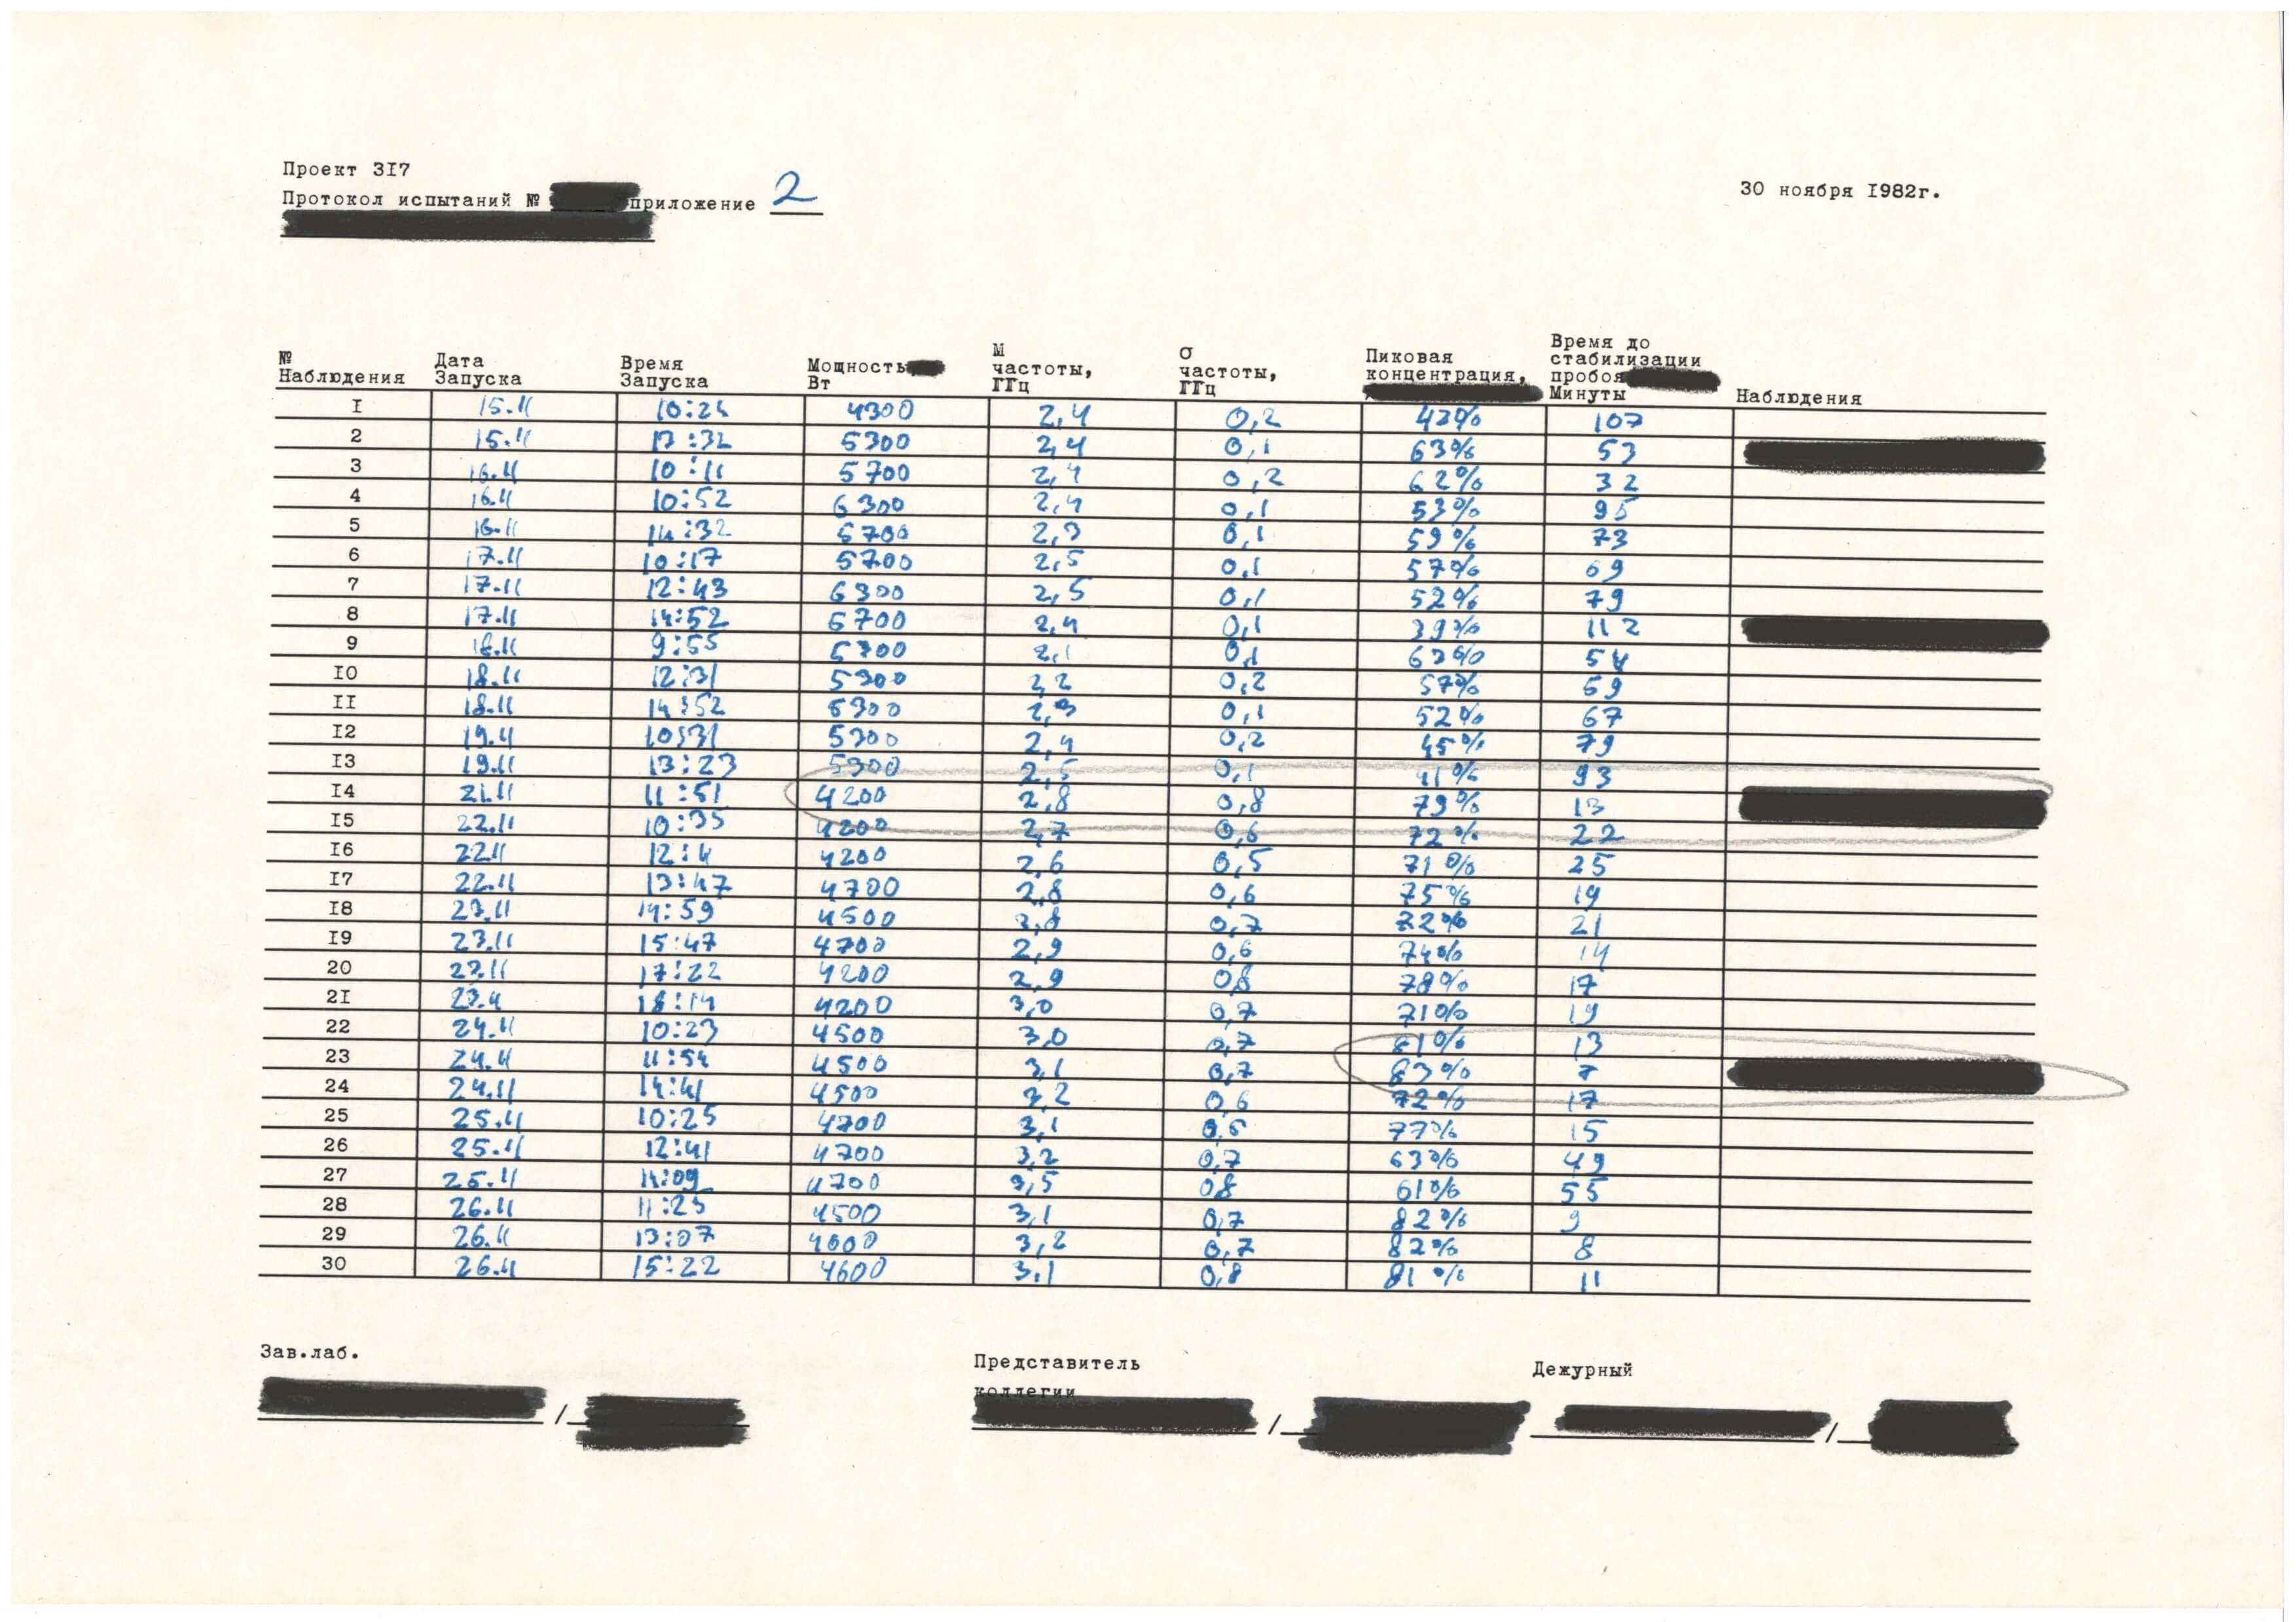 Проект 3I7
Протокол испытаний № приложение 2
30 ноября I982г.
№ Наблюдения Дата Запуска Время Запуска Мощность Вт М частоты, ГГц σ частоты, ГГц Пиковая концентрация, Время до стабилизации пробоя Минуты Наблюдения
I 15.11 4300 2,4 0,2 107
2 15.11 13:32 5300 2,4 0,1 63% 53
3 16.11 10:11 5700 2,4 0,2 62% 32
4 16.11 10:52 6300 2,4 0,1 53% 95
5 16.11 14:32 2,3 0,1 59% 73
6 17.11 10:17 5700 2,5 0,1 57% 69
7 17.11 12:43 6300 2,5 0,1 52% 79
8 17.11 14:52 6700 2,4 0,1 39% 112
9 18.11 9:55 2,1 0,1 63% 54
I0 18.11 12:31 5300 2,2 0,2 57% 59
II 18.11 14:52 5300 2,3 0,1 52% 67
I2 19.11 10:31 5300 2,4 0,2 45% 79
I3 19.11 13:23 5300 2,5 0,1 41% 93
I4 21.11 11:51 4200 2,8 0,8 79% 13
I5 22.11 10:35 4200 2,7 0,6 72% 22
I6 22.11 4200 2,6 0,5 71% 25
I7 22.11 13:47 4700 2,8 0,6 75% 19
I8 23.11 14:59 4500 2,8 0,7 72% 21
I9 23.11 15:47 4700 2,9 0,6 74% 14
20 23.11 17:22 4200 2,9 0,8 78% 17
2I 23.11 18:14 4200 3,0 0,7 71% 19
22 24.11 10:23 4500 3,0 0,7 81% 13
23 24.11 11:54 4500 3,1 0,7 83% 7
24 24.11 14:41 4500 3,2 0,6 72% 17
25 25.11 10:25 4700 3,1 77% 15
26 25.11 12:41 4700 3,2 0,7 63% 49
27 25.11 14:09 4700 3,5 0,8 61% 55
28 26.11 11:23 4500 3,1 0,7 82% 9
29 26.11 13:07 3,2 0,7 82% 8
30 26.11 15:22 4600 3,1 0,8 81% 11
Зав.лаб. Представитель коллегии Дежурный
/ / /